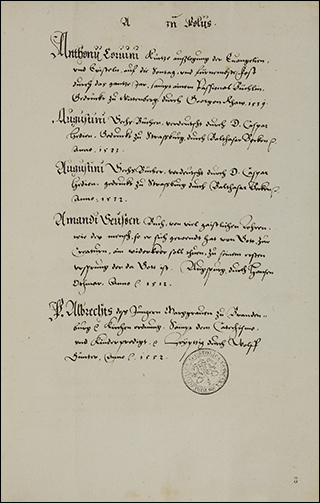 A in Folio.
Anthonij Corvini Kurtze außlegung der Euangelien,
vnd Episteln, auf die Sontag, vnd fürnembste Fest
durch das gantze Jar, sampt einem Passional Büchlin.
Gedruckt zu Wittenberg, durch Georgen Rhaw. 1539.
Augustini Sechs Bücher, verdeutscht durch D. Caspar
Hedion. Gedruckt zu Straßburg, durch Balthasar
Anno. 1532.
Augustini Sechs Bücher, verdeütscht durch D. Caspar
Hedion. gedruckt zu Straßburg durch Balthasar
Anno. 1532.
Amandi Seüßen Buch, von viel geistlichen
wie der mensch, so er sich gewendt hat von Gott, zur
Creaturn, ein widerkehr soll thuen, zu seinem ersten
vrsprung der da Gott ist. Augspurg, durch Hansen
Othmar. Anno 1512.
Albrechts deß Jüngern Marggrauen zu Branden-
burg Kirchen ordnung. Sampt dem Catechismo,
vnd Kinderpredigt. Leyptzig durch Wolff
Günter, Anno 1552.